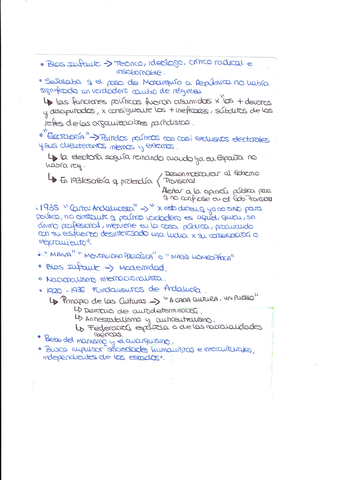 • Blas Infante → Teórico, ideólogo, crítico radical e
insobornable.
• Señalaba q el paso de Monarquía a República no había
significado un verdadero cambio de régimen
↳ Las funciones políticas fueron asumidas x los + devotos
y desaprovados, x consiguiente los + ineficaces, súbditos de los
jefes de las organizaciones partidistas.
• "Electorería" → Partidos políticos con casi exclusivos electorales
y sus clientelismos internos y externos
↳ la electorería seguía reinando cuando ya en España no
había rey.
↳ En 1931 escribía q pretendía
Desenmascarar al Gobierno
Provisional
Alertar a la opinión pública para
q no confiase en el Gob Provisional
• 1935 "Carta Andalucista" → "x esto digo q yo no sirvo para
político, no obstante q político verdadero es aquel quien, sin
ánimo profesional, interviene en la cosa pública, procurando
con su esfuerzo desinteresado una lucha x su conservación o
mejoramiento".
•
• Blas Infante → Modernidad.
• Nacionalismo internacionalista.
• 1920 - 1930 Fundamentos de Andalucía.
↳ Principio de las Culturas → "A CADA CULTURA, UN PUEBLO"
↳ Derecho de autodeterminación.
↳ Antiestatalismo y anticentralismo.
↳ Federación española o de las nacionalidades
ibéricas.
• Bebe del marxismo y el anarquismo.
• Busca impulsar sociedades humanistas e interculturales,
independientes de los estados".